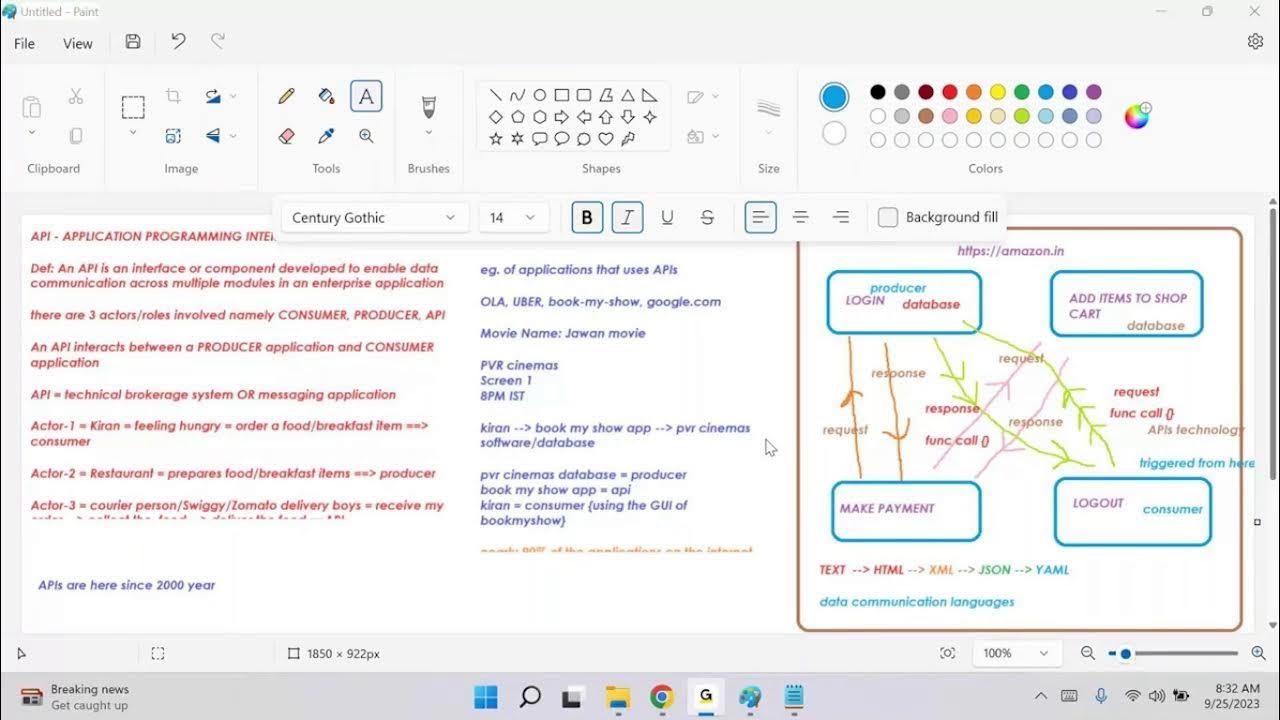 Untitled - Paint
File View
Clipboard
Image
Tools
Brushes
Shapes
Size
Colors
Century Gothic
14
B I U S
Background fill
API - APPLICATION PROGRAMMING
Def: An API is an interface or component developed to enable data
communication across multiple modules in an enterprise application
there are 3 actors/roles involved namely CONSUMER, PRODUCER, API
An API interacts between a PRODUCER application and CONSUMER
application
API = technical brokerage system OR messaging application
Actor-1 = Kiran = feeling hungry = order a food/breakfast item ==>
consumer
Actor-2 = Restaurant = prepares food/breakfast items ==> producer
Actor-3 = courier person/Swiggy/Zomato delivery boys = receive my
APIs are here since 2000 year
eg. of applications that uses APIs
OLA, UBER, book-my-show, google.com
Movie Name: Jawan movie
PVR cinemas
Screen 1
8PM IST
kiran --> book my show app --> pvr cinemas
software/database
pvr cinemas database = producer
book my show app = api
kiran = consumer {using the GUI of
bookmyshow}
nearly 90% of the applications on the internet
https://amazon.in
producer
LOGIN database
ADD ITEMS TO SHOP
CART
database
request
response
request
response
func call {}
response
APIs technology
request
func call {}
triggered from here
MAKE PAYMENT
LOGOUT
consumer
TEXT --> HTML --> XML --> JSON --> YAML
data communication languages
1850 × 922px
100%
Breaking news
Get caught up
8:32 AM
9/25/2023